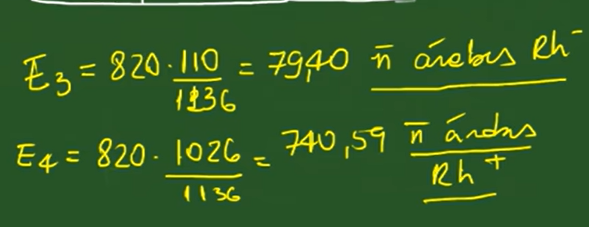 E3 = 820 · 110/1136 = 79,40 n̄ árabes Rh-
E4 = 820 · 1026/1136 = 740,59 n̄ árabes Rh+